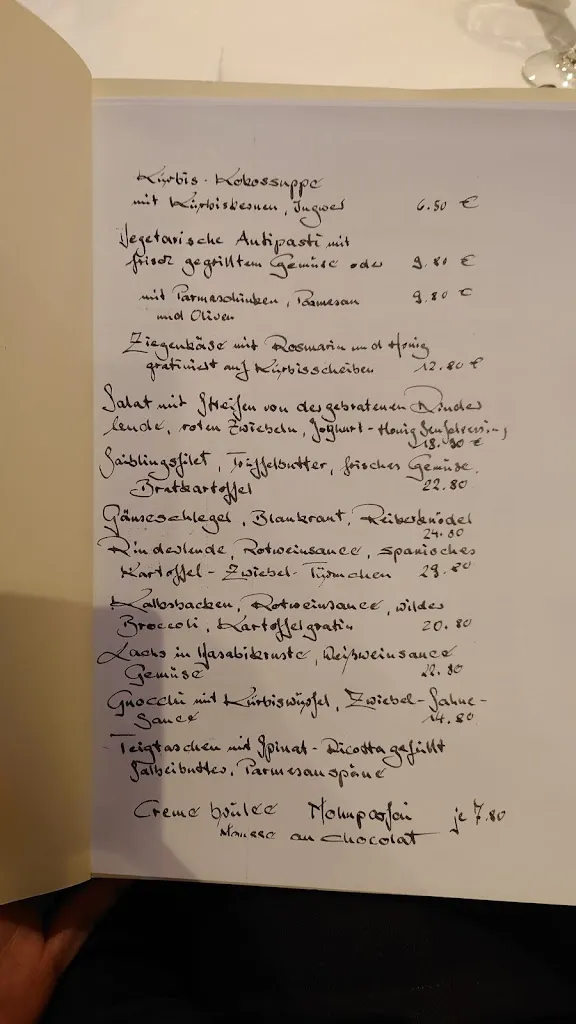 Kürbis-Kokossuppe
mit Kürbiskernen, Ingwer 6.50 €
Vegetarische Antipasti mit
frisch gegrilltem Gemüse oder 9.80 €
mit Parmaschinken, Parmesan 9.80 €
und Oliven
Ziegenkäse mit Rosmarin und Honig
gratiniert auf Kürbisscheiben 12.80 €
Salat mit Streifen von der gebratenen Rinder
lende, roten Zwiebeln, Joghurt-Honig
18.90 €
Saiblingsfilet, Trüffelbutter, frisches Gemüse,
Bratkartoffel 22.80
Gänseschlegel, Blaukraut, Reibeknödel
24.80
Rinderlende, Rotweinsauce, spanisches
Kartoffel-Zwiebel-Türmchen 29.80
Kalbsbacken, Rotweinsauce, wilder
Broccoli, Kartoffelgratin 20.80
Lachs in Wasabikruste, Weißweinsauce
Gemüse 22.80
Gnocchi mit Kürbiswürfel, Zwiebel-Sahne-
Sauce 14.80
Teigtaschen mit Spinat-Ricotta gefüllt
Salbeibutter, Parmesanspäne
Creme brulee Mohnparfait je 7.80
Mousse au chocolat